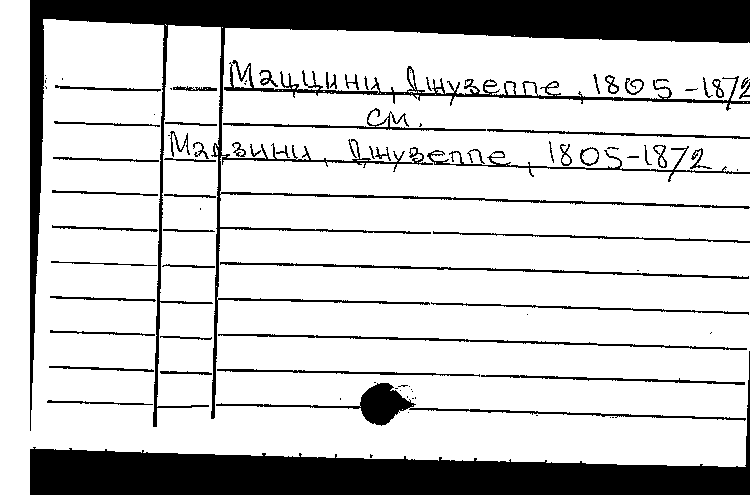 Маццини, Джузеппе, 1805-1872
см.
Мадзини, Джузеппе, 1805-1872.